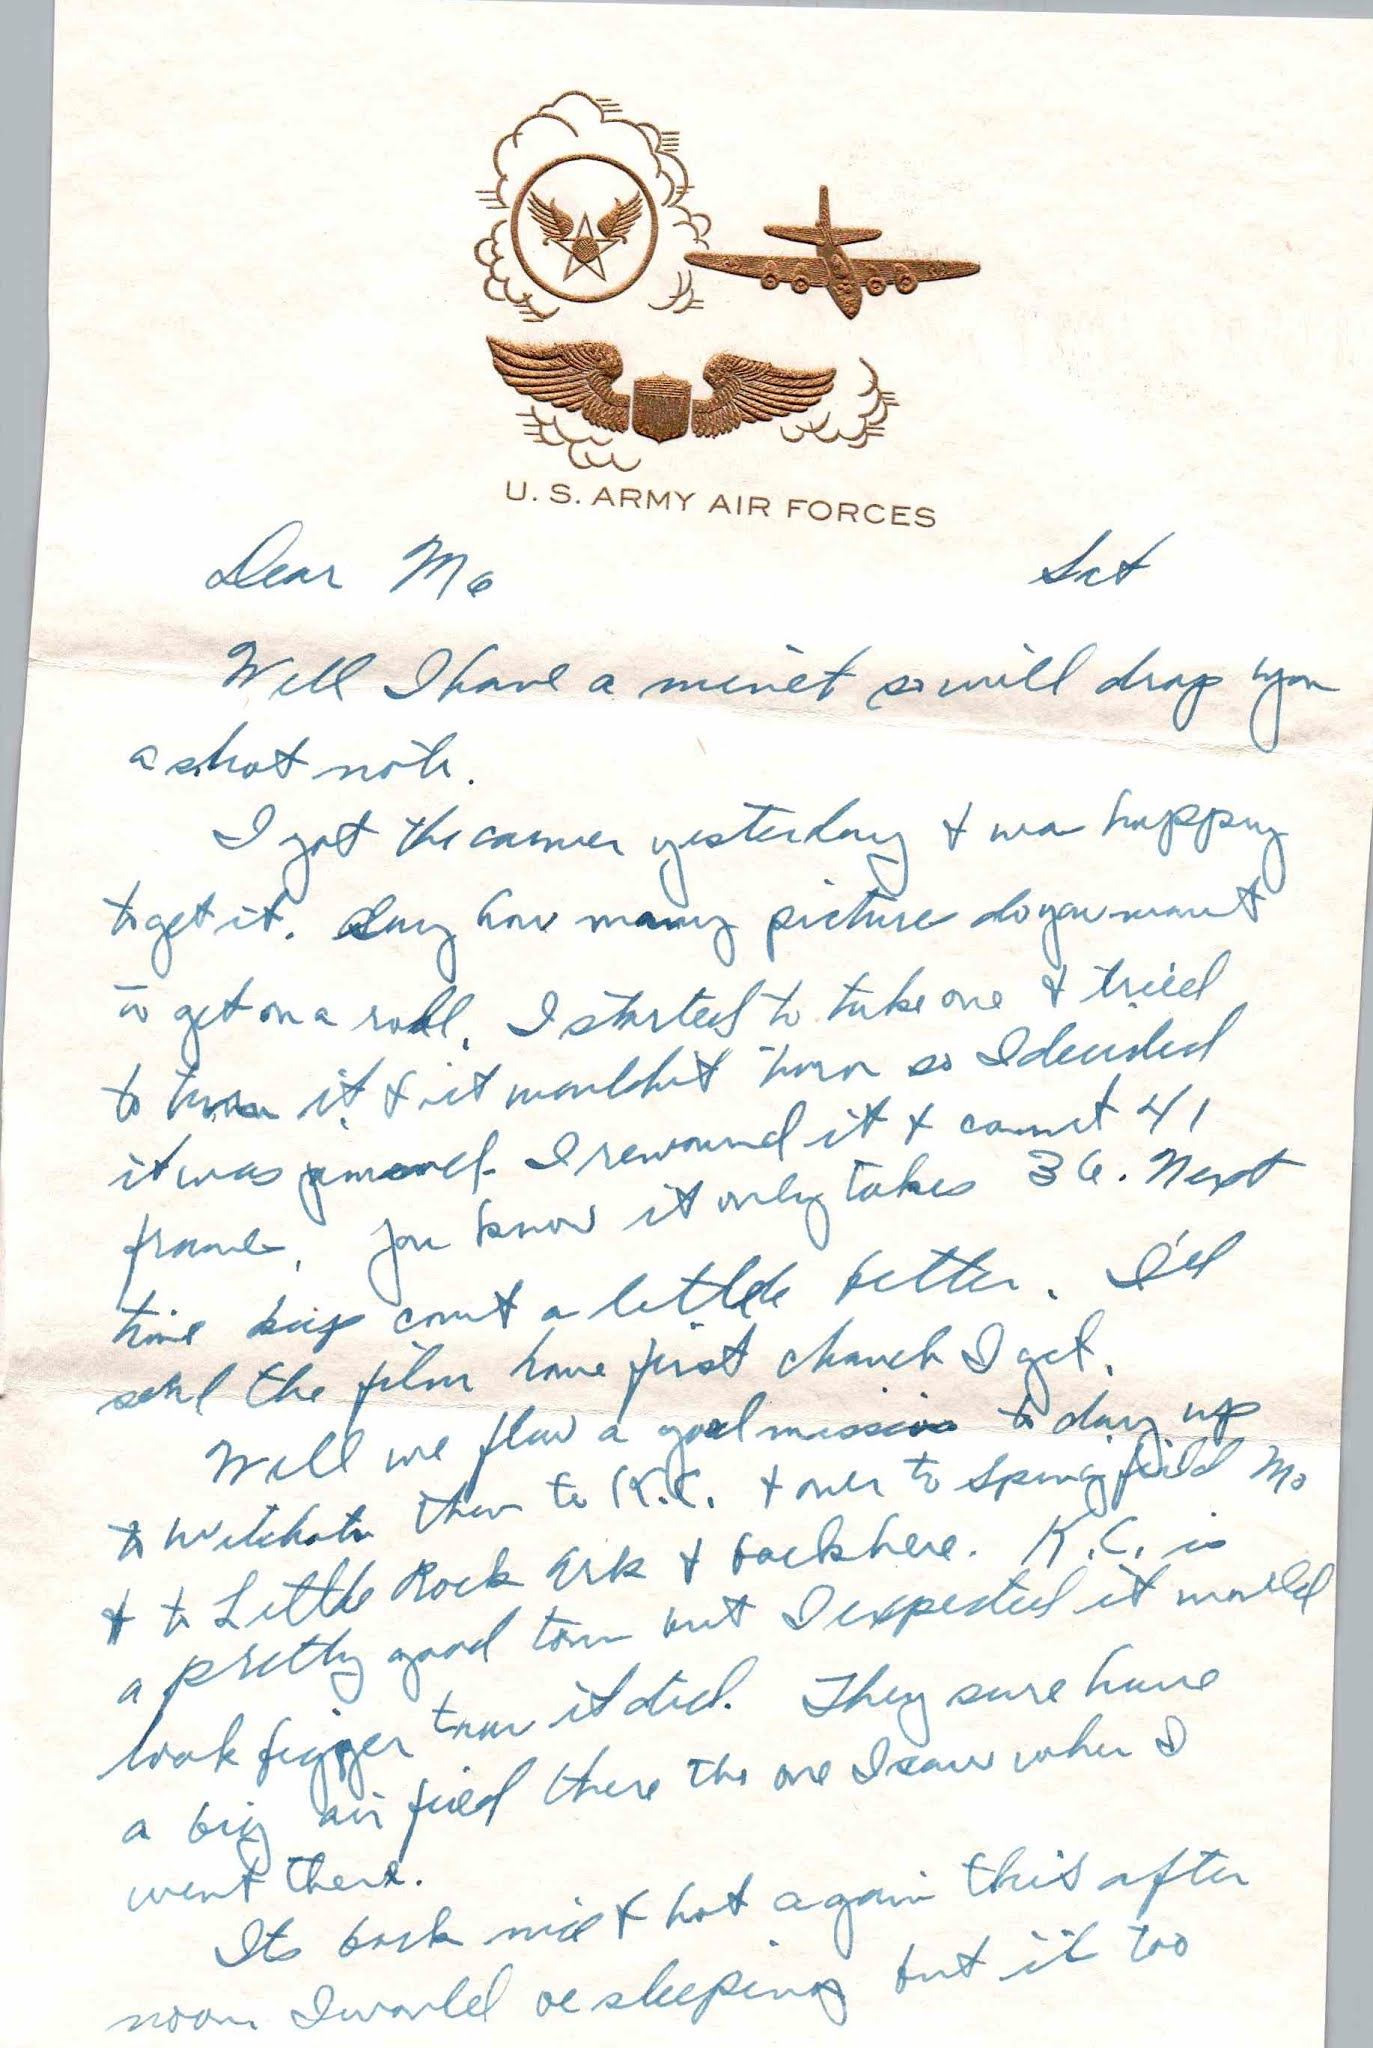 U. S. ARMY AIR FORCES
Dear Ma Sat
Well I have a minet so will drop you
a shot note.
I got the camer yesterday & was happy
to get it. Say how many picture do you want
to get on a roll. I started to take one & tried
to turn it & it wouldnt turn so I decided
it was jammed. I rewound it & count 41
frame. You know it only takes 36. Next
time keep count a little better. I'll
send the film home first chanch I get.
Well we flew a good mission to day up
to Witchata then to K.C. & over to Springfield Mo
& to Little Rock Ark & back here. K.C. is
a pretty good town but I expected it would
look bigger than it did. They sure have
a big air field there the one I saw when I
went there.
Its back nice & hot again this after
noon I would be sleeping but it too